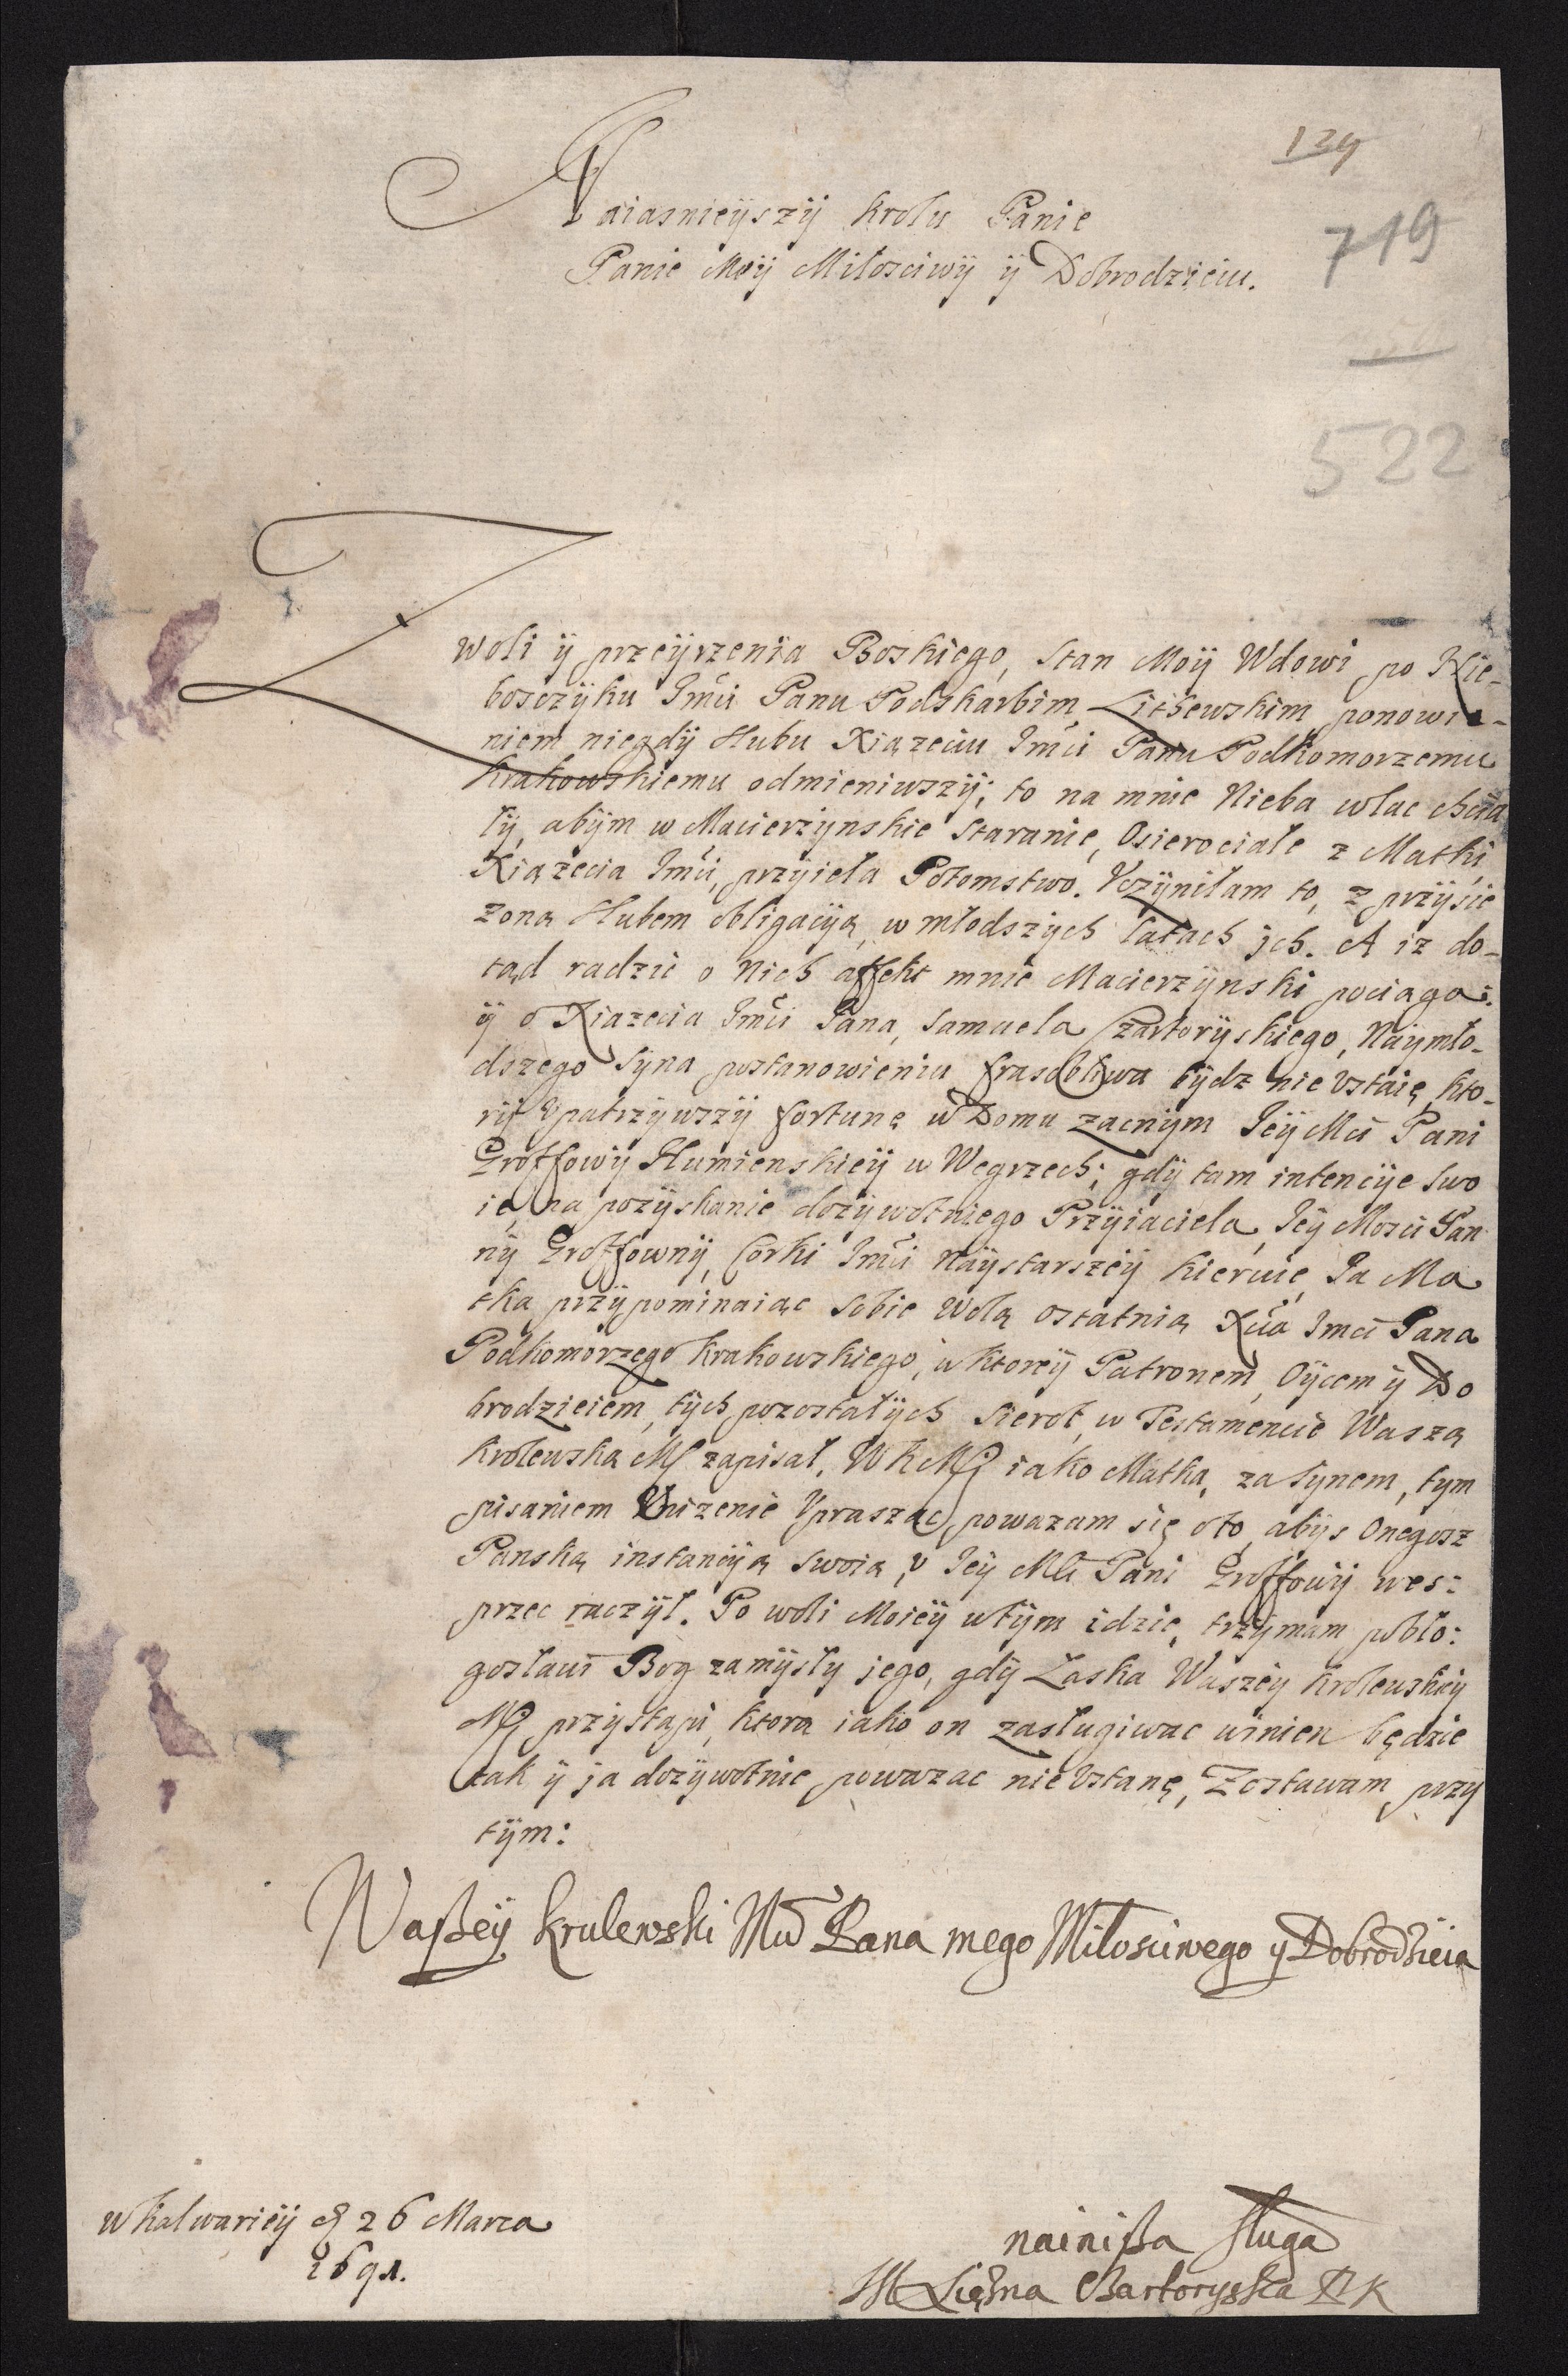 139
Naiasnieÿszÿ Krolu Panie
Panie Moÿ Miłosciwÿ ÿ Dobrodzieiu.
719
522
Z woli ÿ przeÿrzenia Boskiego, stan Moÿ Wdowi po Nie-
bosczÿku Jmci Panu Podskarbim Lithewskim ponowie-
niem niegdÿ slubu Xiązeciu Jmci Panu Podkomorzemu
Krakowskiemu odmieniwszÿ; to na mnie Nieba wlac chcia
łÿ, abÿm w Macierzynskie staranie, Osierociałe z Matki
Xiązecia Jmci, przÿieła Potomstwo. Vczÿniłam to, z przÿsie
zoną slubem obligacÿą, w młodszÿch latach jch. A iz do-
tąd radzic o nich affekt mnie Macierzÿnski pociąga:
ÿ o Xiązecia Jmci Pana, Samuela Czartorÿskiego, Naÿmło-
dszego Sÿna postanowieniu frasobliwa bÿdz nie Vstaię, kto-
rÿ Vpatrzÿwszÿ fortunę w Domu zacnÿm Jeÿ Mci Pani
Groffowÿ Humienskieÿ w Wegrzech; gdÿ tam intencÿe swo
ie, na pozÿskanie dozÿwotniego Przÿiaciela, Jeÿ Mosci Pan
nÿ Groffownÿ, Corki Jmci Naÿstarszeÿ kieruie, Ja Ma
tka przÿpominaiąc sobie Wolą ostatnią Xcia Jmci Pana
Podkomorzego Krakowskiego, w ktoreÿ Patronem, Oÿcem ÿ Do
brodzieiem, tÿch pozostałÿch sierot, w Testamencie Waszą
Krolewską Mc zapisał, W K Mci iako Matka, za Sÿnem, tym
pisaniem Vnizenie Vpraszac powazam się oto, abÿs Onegosz
Panską instancÿą swoią, v Jeÿ Mci Pani Groffowÿ wes:
przec raczÿł. Po woli Moieÿ w tÿm idzie, trzÿmam pobło:
gosławi Bog zamÿsły jego, gdÿ Łaska Waszeÿ Krolewskiey
Mci przÿstąpi, ktora iako on zasługiwac winien będzie
tak ÿ ja dozÿwotnie powazac nie Vstanę, Zostawam przy
tÿm:
Waßeÿ Krulewski Mci Pana mego Miłosciwego y Dobrodzieia
w Kalwarieÿ d 26 Marca
1691.
nainißa sługa
M Xiężna Czartoryska P K